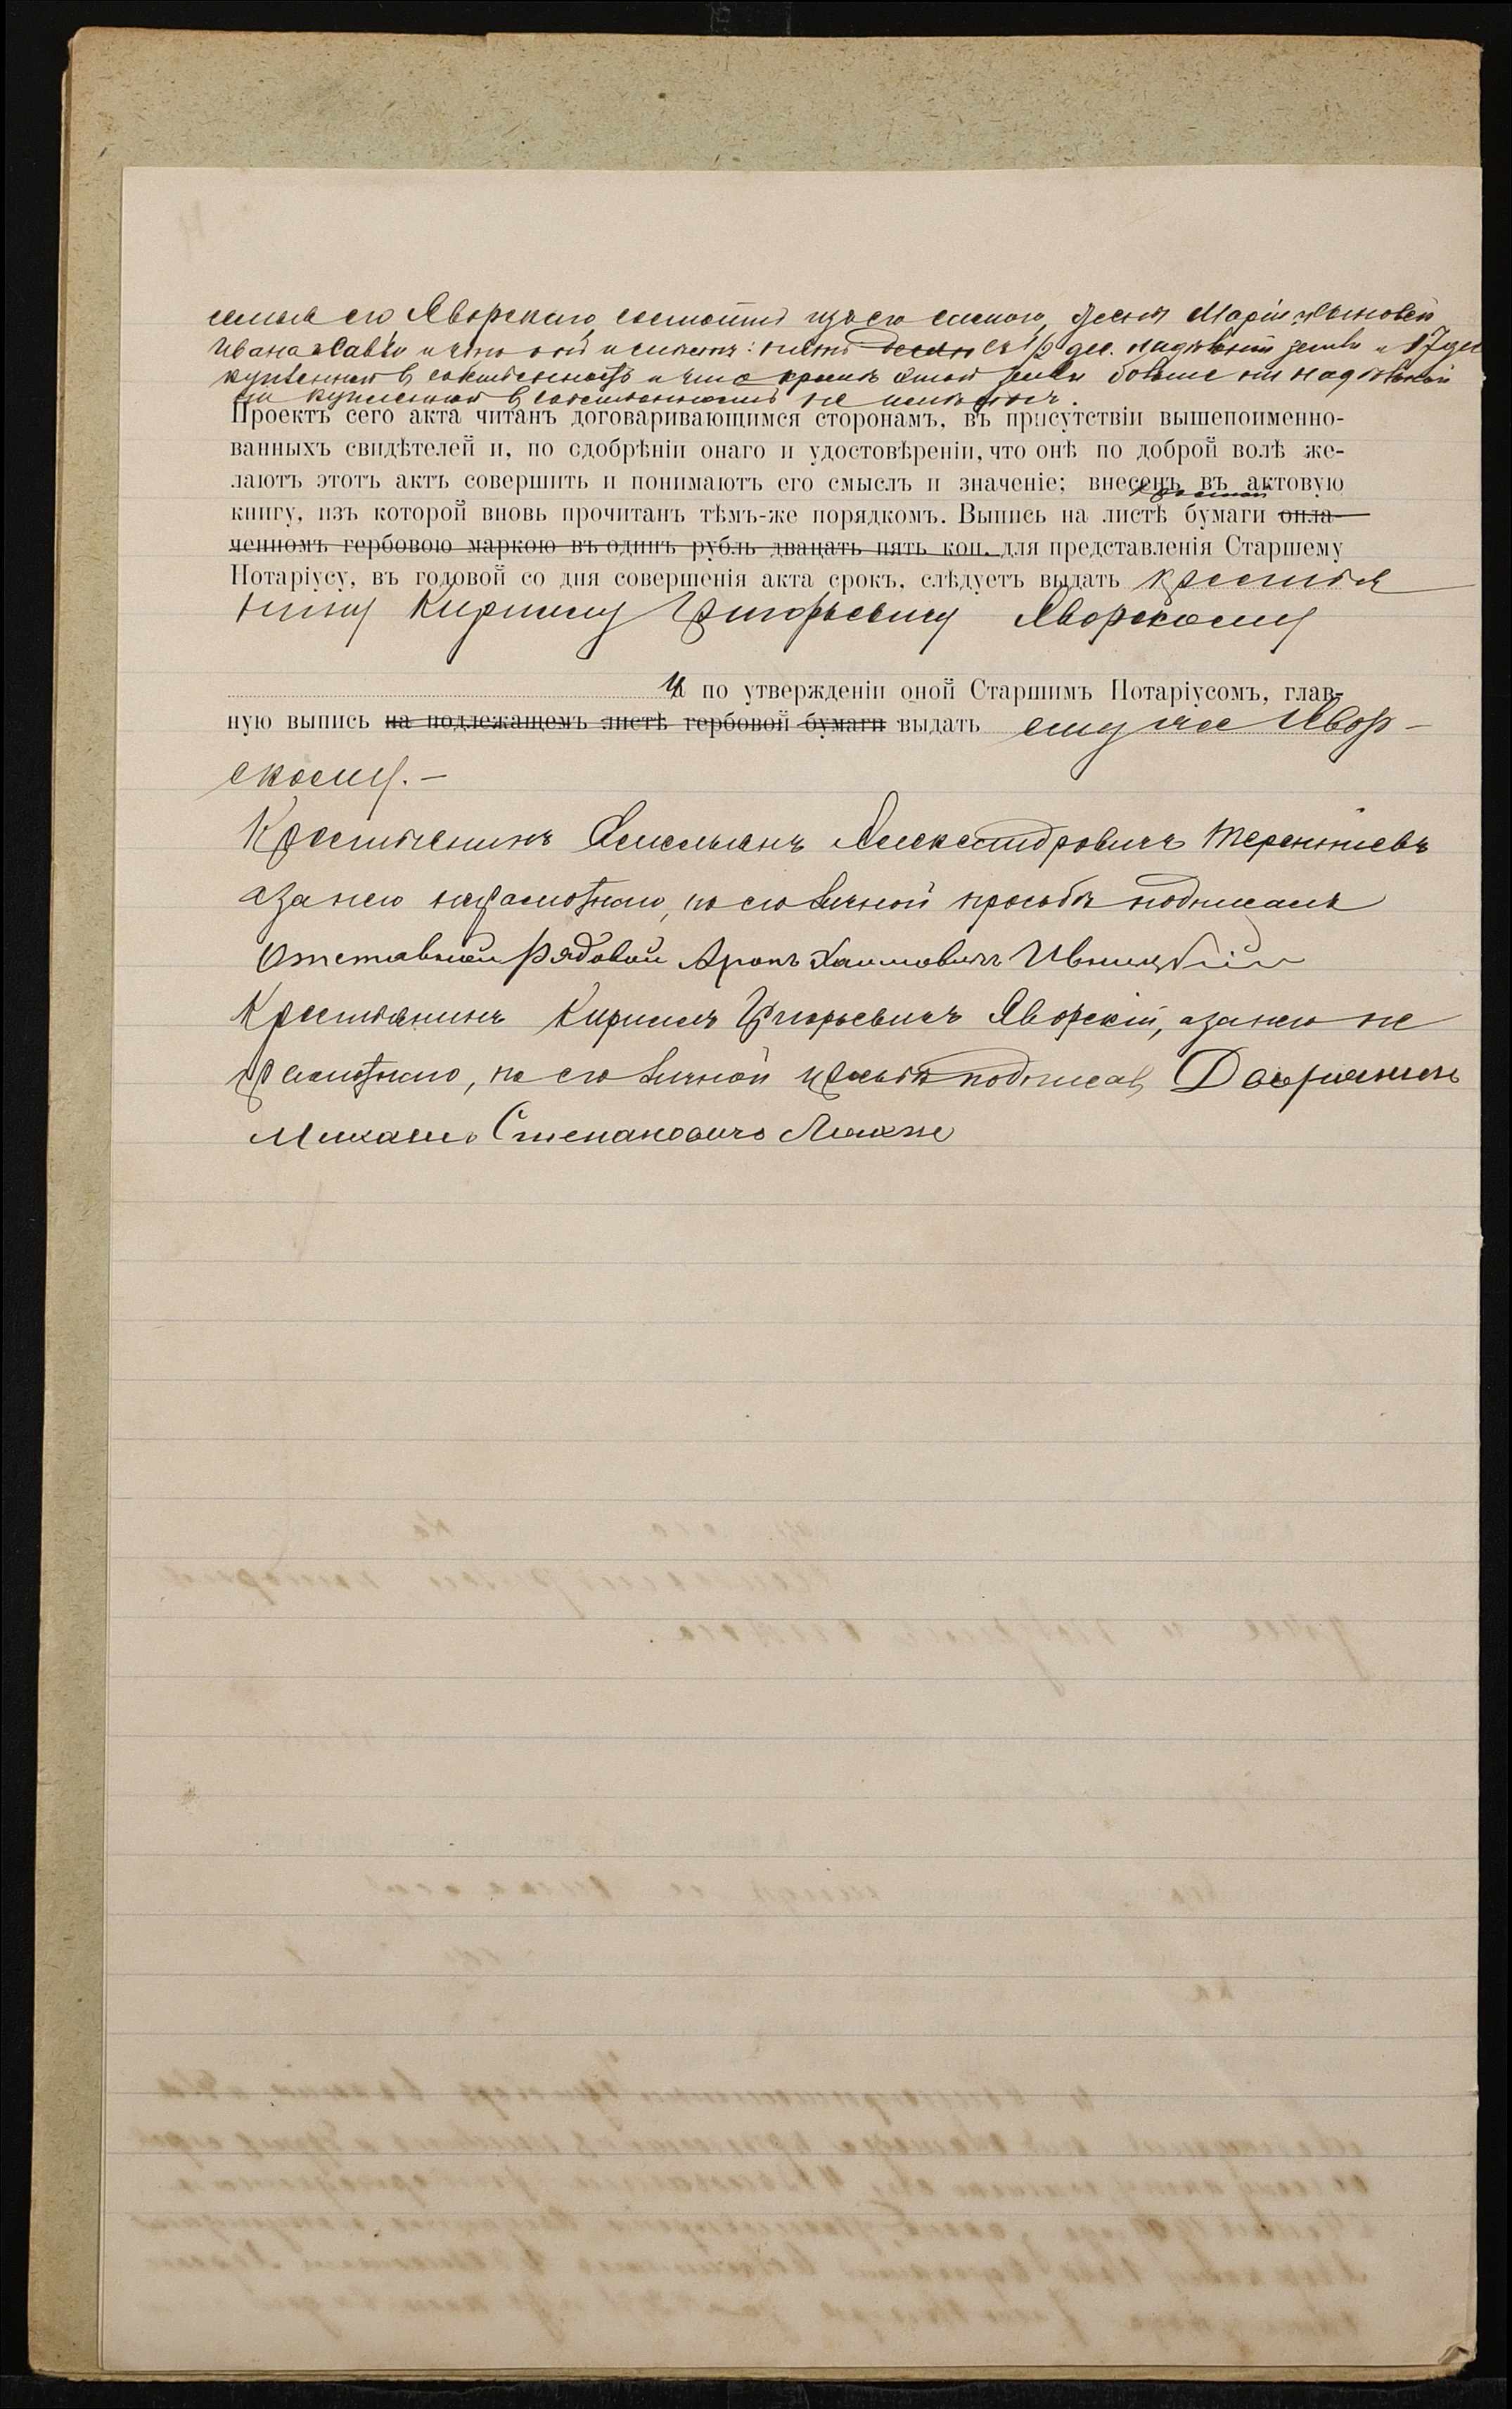 семья его Яворскаго состоитъ изъ его самого, жены Маріи, сыновей
Ивана и Саввы и что они имѣютъ: пять съ 1/2 дес. надѣльной земли и 17 дес
купленной въ собственность и что кромѣ этой земли больше ни надѣльной
ни купленной въ собственность не имѣютъ.
Проектъ сего акта читанъ договаривающимся сторонамъ, въ присутствіи вышепоименно-
ванныхъ свидѣтелей и, по сдобрѣніи онаго и удостовѣреніи, что онѣ по доброй волѣ же-
лаютъ этотъ актъ совершить и понимаютъ его смыслъ и значеніе; внесенъ въ актовую
простой
книгу, изъ которой вновь прочитанъ тѣмъ-же порядкомъ. Выпись на листѣ бумаги опла-
ченномъ гербовою маркою въ одинъ рубль двацать пять коп. для представленія Старшему
Нотаріусу, въ годовой со дня совершенія акта срокъ, слѣдуетъ выдать крестья
нину Кириллу Григорьевичу Яворскому
и по утвержденіи оной Старшимъ Нотаріусомъ, глав-
ную выпись на подлежащемъ листѣ гербовой бумаги выдать ему же Явор-
скому. —
Крестьянинъ Емельянъ Александровичъ Терентіевъ
а за него неграмотнаго, по его личной просьбѣ подписалъ
Отставной рядовой Аронъ Хаимовичъ Ивницкій
Крестьянинъ Кириллъ Григорьевичъ Яворскій, а за него не
грамотнаго, по его личной просьбѣ подписалъ Дворянинъ
Михаилъ Степановичъ